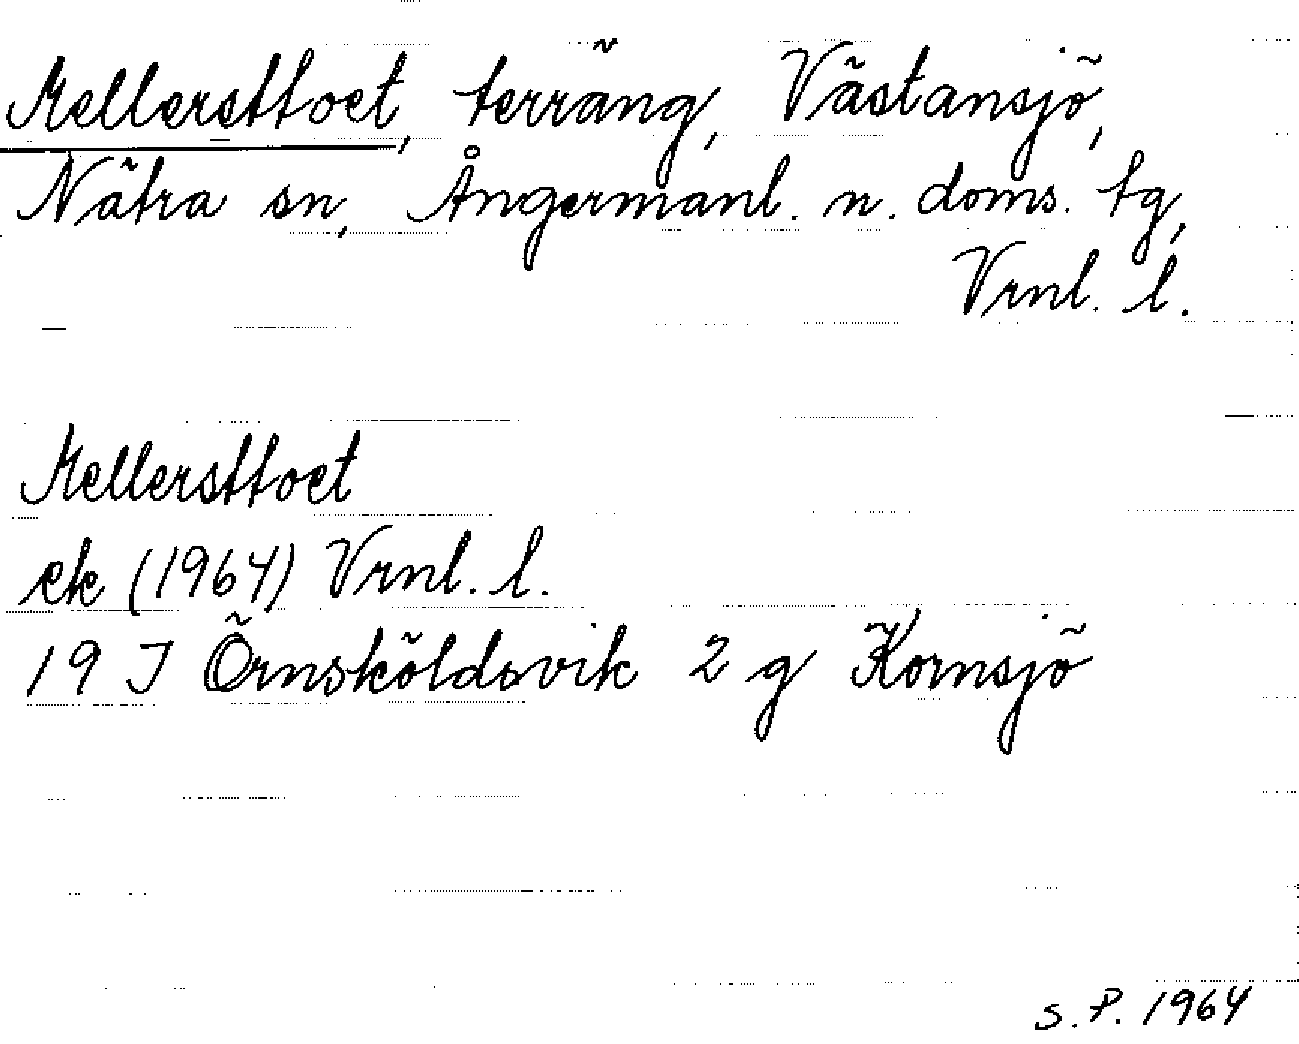 Mellersttoet, terräng, Västansjö,
Nätra sn, Ångermanl. n. doms. tg,
Vrnl. l.
Mellersttoet
ek (1964) Vrnl. l.
19 J Örnsköldsvik 2 g Kornsjö
S. P. 1964